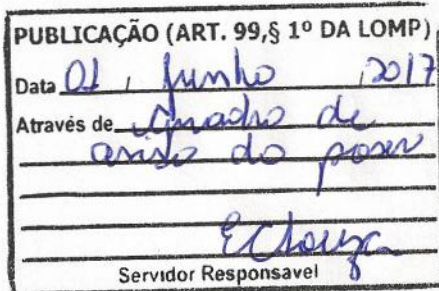 PUBLICAÇÃO (ART. 99,§ 1º DA LOMP)
Data 01 / Junho /2017
Através de Quadro de
aviso do
Servidor Responsavel